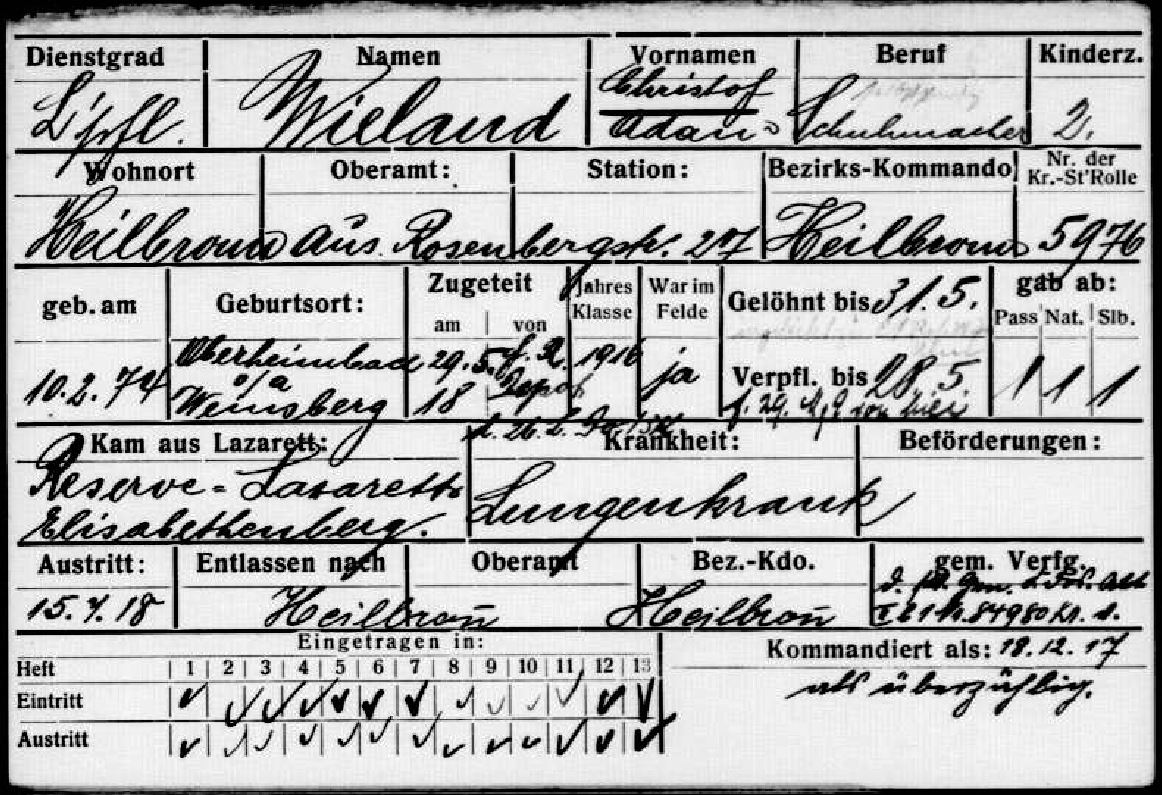 Dienstgrad Namen Vornamen Beruf Kinderz.
L'pfl. Wieland Christof Adam Schuhmacher 2.
Wohnort Oberamt: Station: Bezirks-Kommando Nr. der Kr.-St'Rolle
Heilbronn aus. Rosenbergstr. 27 Heilbronn 5976
geb. am Geburtsort: Zugeteit am von Jahres Klasse War im Felde Gelöhnt bis 31. 5. gab ab: Pass Nat. Slb.
10. 2. 74 Oberheimbach o/a Weinsberg 29. 5. 18 Depot 1916 ja Verpfl. bis 28. 5. 1 1 1
Kam aus Lazarett: Krankheit: Beförderungen:
Reserve-Lazarett Lungenkrank
Elisabethenberg.
Austritt: Entlassen nach Oberamt Bez.-Kdo. gem. Verfg.
15. 7. 18 Heilbron̄ Heilbron̄ 84980 Kr.
Eingetragen in: Kommandiert als: 18. 12. 17
Heft 1 2 3 4 5 6 7 8 9 10 11 12 13
als überzählig.
Eintritt
Austritt